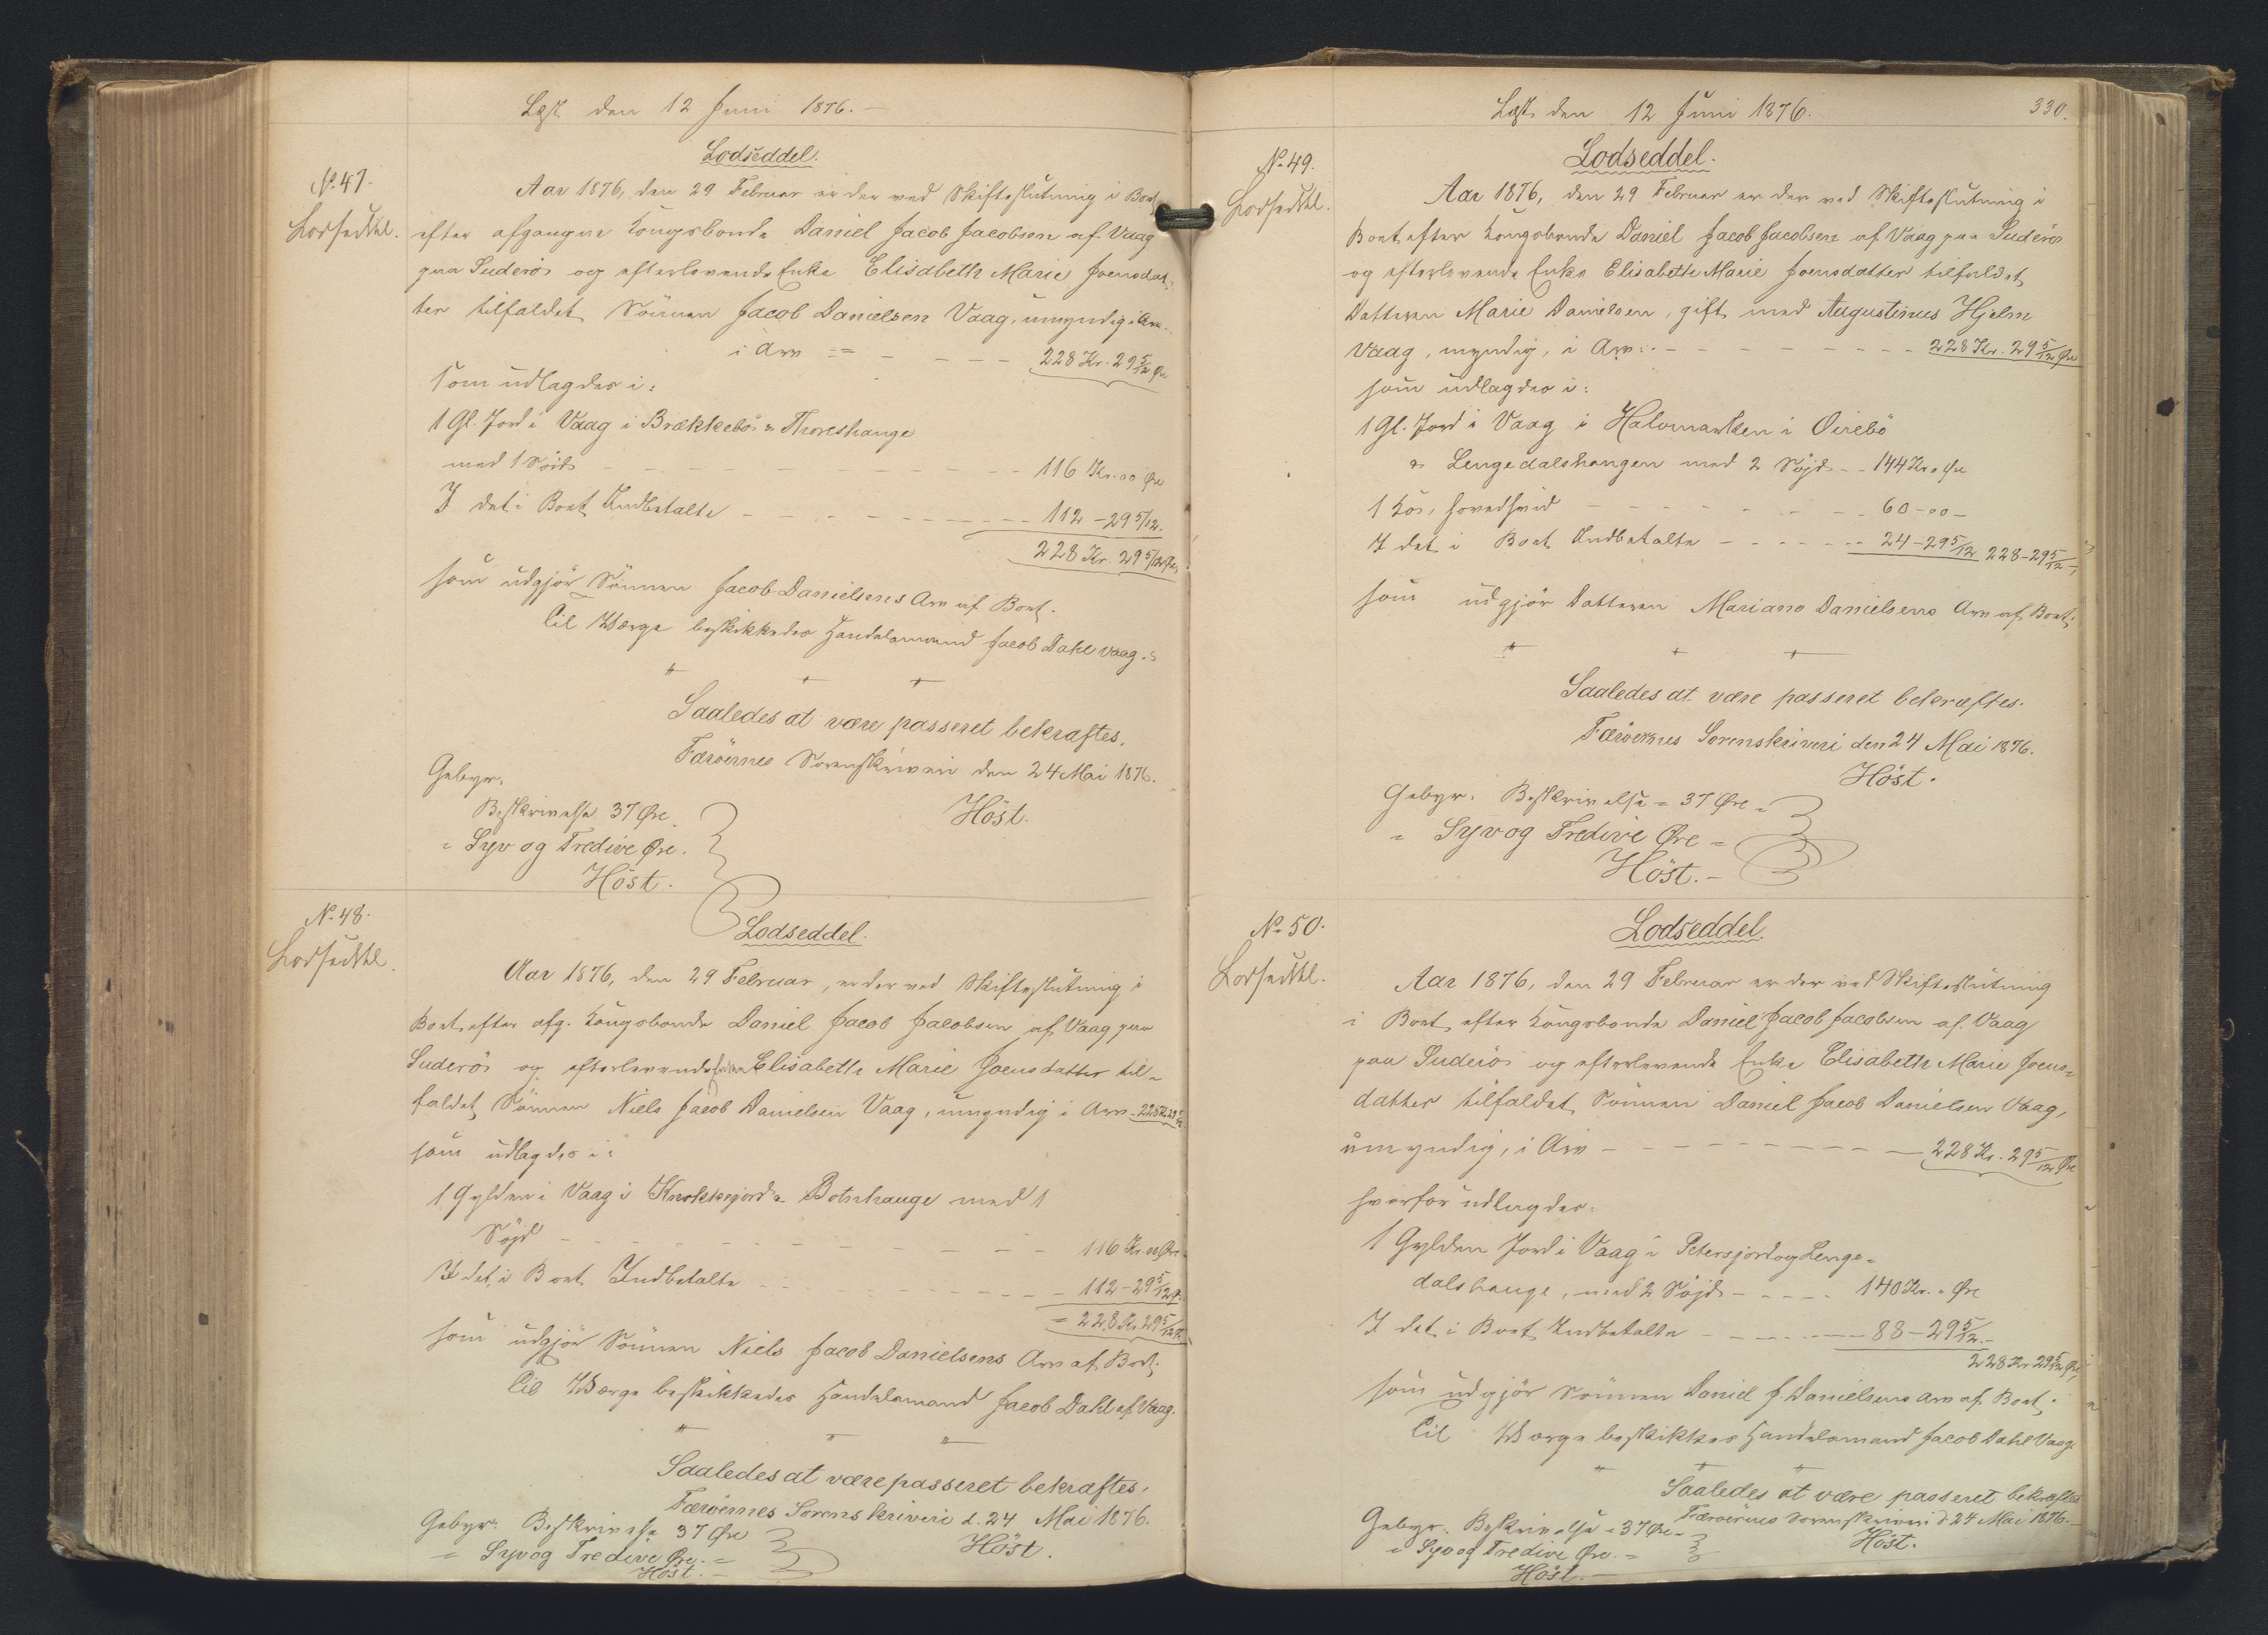 Læst den 12 Juni 1876. —
Lodseddel.
No. 47.
Lodseddel.
Aar 1876, den 29 Februar er der ved Skifteslutning i Boet
efter afgangne Kongsbonde Daniel Jacob Jacobsen af Vaag
paa Suderö og efterlevende Enke Elisabeth Marie Joensdat-
ter tilfaldet Sönnen Jacob Danielsen Vaag, umyndig
i Arv = — — — 228 Kr. 29 5/12 Øre
som udlagdes i:
1 Gl. Jord i Vaag i Brækkebö & Thoreshauge
med 1 Söid — — — 116 Kr. 00 Øre
I det i Boet Indbetalte — — — 112 - 29 5/12.
228 Kr. 29 5/12 Øre
som udgjör Sönnen Jacob Danielsens Arv af Boet.
Til Værge beskikkedes Handelsmand Jacob Dahl Vaag.
Saaledes at være passeret bekræftes.
Færöernes Sorenskriveri den 24 Mai 1876.
Höst.
Gebyr.
Beskrivelse 37 Øre
= Syv og Tredive Øre.
Höst.
No. 48.
Lodseddel.
Lodseddel.
Aar 1876, den 29 Februar, er der ved Skifteslutning i
Boet efter afg. Kongsbonde Daniel Jacob Jacobsen af Vaag paa
Suderö og efterlevende Enke Elisabeth Marie Joensdatter til-
faldet Sönnen Niels Jacob Danielsen Vaag, umyndig i Arv - 228 Kr. 29 5/12
som udlagdes i:
1 Gylden i Vaag i Knokkejord & Botnhauge med 1
Söjd — — — 116 Kr. 00 Øre
I det i Boet Indbetalte — — — 112 - 29 5/12
= 228 Kr. 29 5/12
som udgjör Sönnen Niels Jacob Danielsens Arv af Boet.
Til Værge beskikkedes Handelsmand Jacob Dahl af Vaag.
Saaledes at være passeret bekræftes.
Færöernes Sorenskriveri d. 24 Mai 1876.
Höst.
Gebyr: Beskrivelse 37 Øre
= Syv og Tredive Øre. =
Höst. —
Læst den 12 Juni 1876.
330.
No. 49.
Lodseddel.
Lodseddel.
Aar 1876, den 29 Februar er der ved Skifteslutning i
Boet efter Kongsbonde Daniel Jacob Jacobsen af Vaag paa Suderö
og efterlevende Enke Elisabeth Marie Joensdatter tilfaldet
Datteren Marie Danielsen, gift med Augustinus Hjelm
Vaag, myndig, i Arv: — — — 228 Kr. 29 5/12 Øre
som udlagdes i:
1 Gl. Jord i Vaag i Halvmarken i Øirebö
& Lengedalshaugen med 2 Söjd - - 144 Kr. " Øre
1 Ko, — — — 60 - 00 -
I det i Boet Indbetalte — — — 24 - 29 5/12 228 - 29 5/12
som udgjör Datteren Mariane Danielsens Arv af Boet.
Saaledes at være passeret bekræftes.
Færöernes Sorenskriveri den 24 Mai 1876.
Höst.
Gebyr. Beskrivelse = 37 Øre =
= Syv og Tredive Øre =
Höst. —
No. 50.
Lodseddel.
Lodseddel.
Aar 1876, den 29 Februar er der ved Skifteslutning
i Boet efter Kongsbonde Daniel Jacob Jacobsen af Vaag
paa Suderö og efterlevende Enke Elisabeth Marie Joens-
datter tilfaldet Sönnen Daniel Jacob Danielsen Vaag,
umyndig, i Arv — — — 228 Kr. 29 5/12 Øre
hvorfor udlagdes:
1 Gylden Jord i Vaag i Petersjord og Lenge-
dalshauge, med 2 Söjd — — 140 Kr. " Øre
I det i Boet Indbetalte — — — 88 - 29 5/12 -
228 Kr 29 5/12 Øre
som udgjör Sönnen Daniel J. Danielsens Arv af Boet.
Til Værge beskikkes Handelsmand Jacob Dahl Vaag
Saaledes at være passeret bekræftes
Færöernes Sorenskriveri d 24 Mai 1876. —
Höst.
Gebyr. Beskrivelse = 37 Øre -
= Syv og Tredive Øre. =
Höst. —